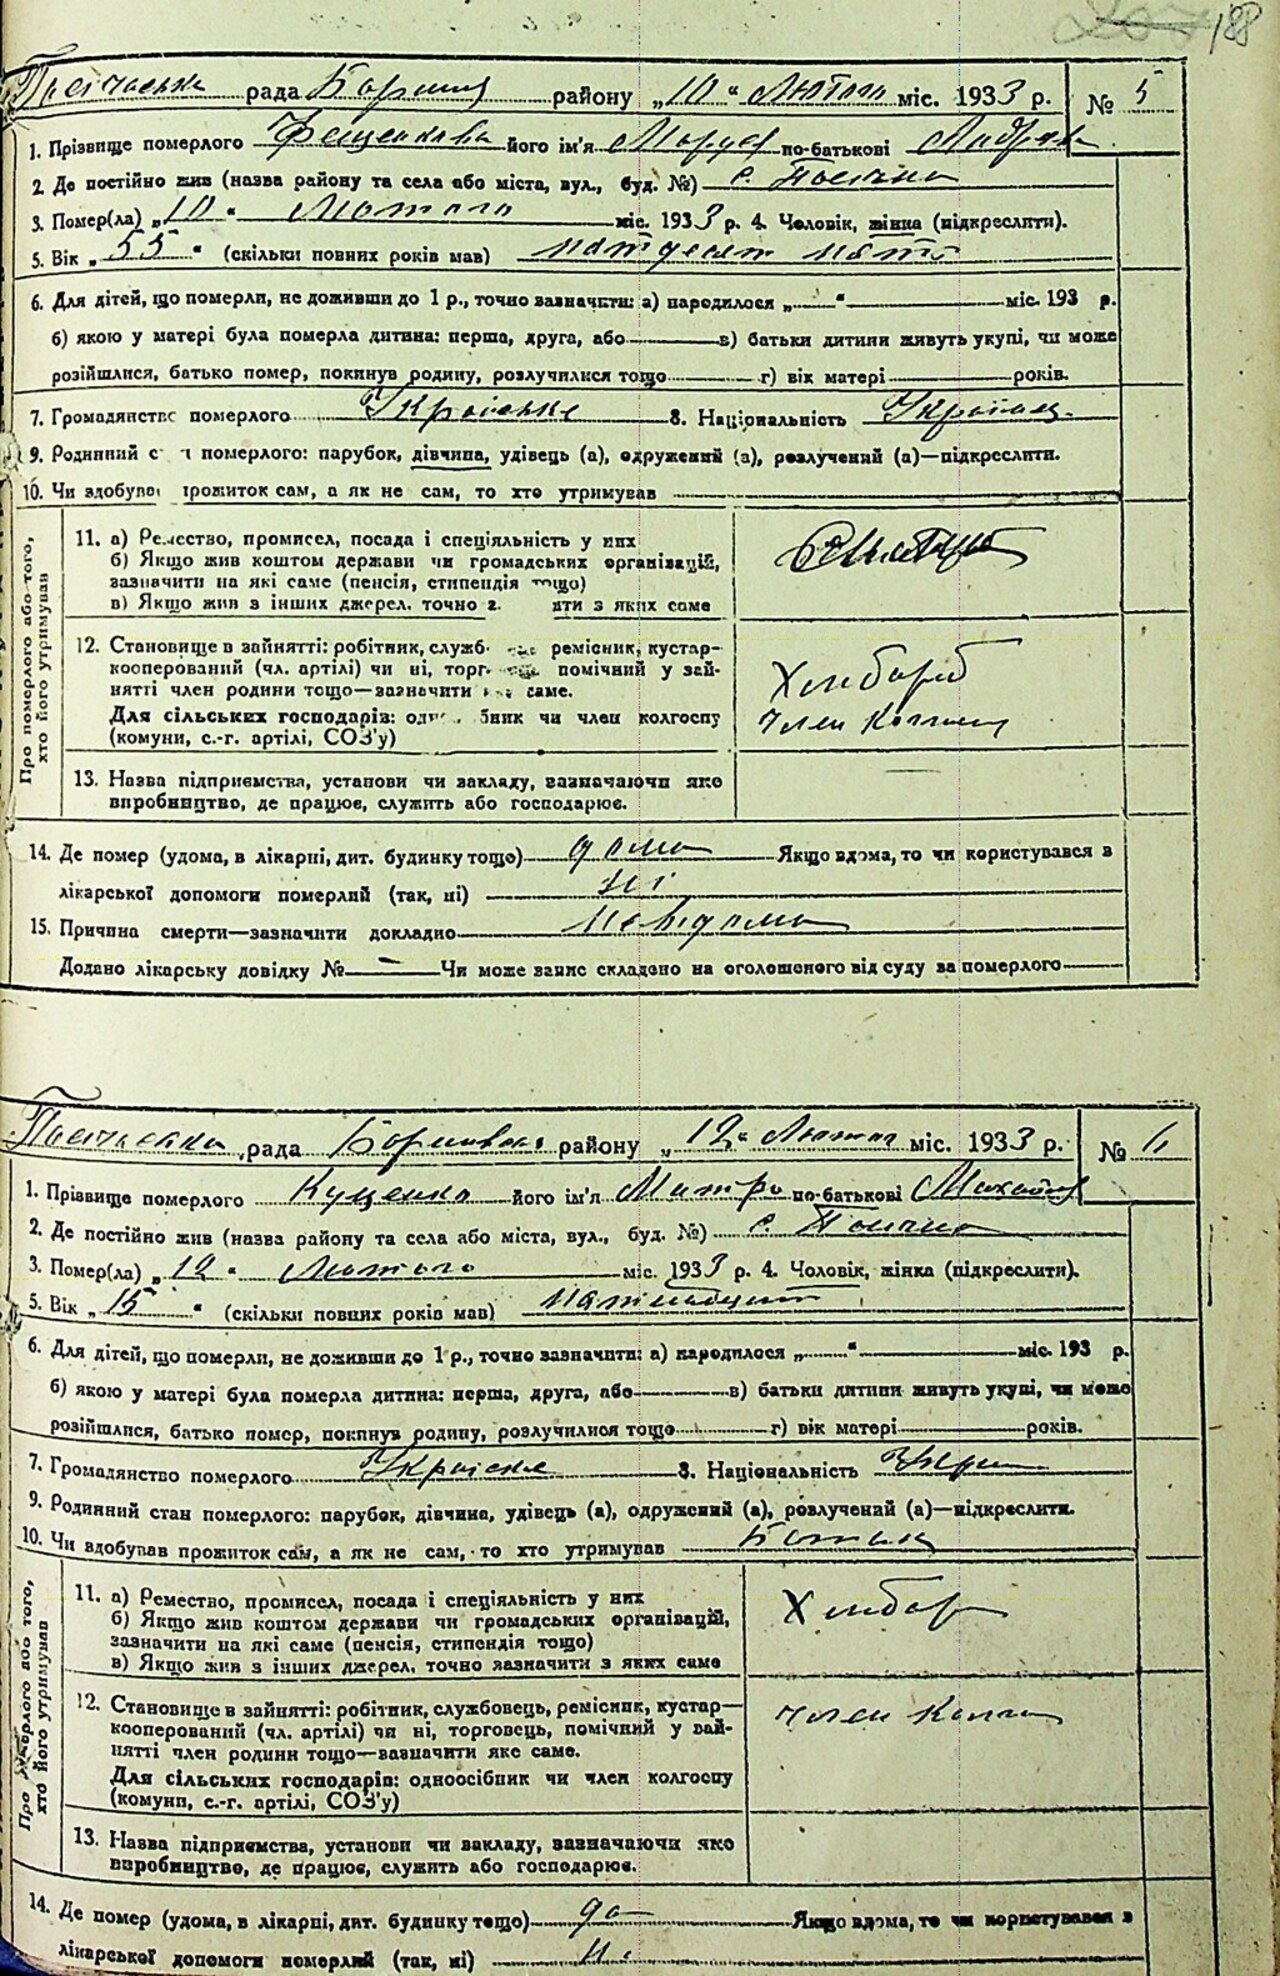 188
рада району „10“ Лютого міс. 1933 р. № 5
1. Прізвище померлого його ім'я по-батькові
2. Де постійно жив (назва району та села або міста, вул., буд. №) с.
3. Помер(ла) „10“ Лютого міс. 1933 р. 4. Чоловік, жінка (підкреслити).
5. Вік „55“ (скільки повних років мав)
6. Для дітей, що померли, не доживши до 1 р., точно зазначити: а) народилося „ “ міс. 193 р.
б) якою у матері була померла дитина: перша, друга, або в) батьки дитини живуть укупі, чи може
розійшлися, батько помер, покинув родину, розлучилися тощо г) вік матері років.
7. Громадянство померлого Українське 8. Національність
9. Родинний померлого: парубок, дівчина, удівець (а), одружений (а), розлучений (а)—підкреслити.
10. Чи здобував прожиток сам, а як не сам, то хто утримував
Про померлого або того,
хто його утримував
11. а) Ремество, промисел, посада і спеціяльність у них
б) Якщо жив коштом держави чи громадських організацій,
зазначити на які саме (пенсія, стипендія тощо)
в) Якщо жив з інших джерел, точно з яких саме
12. Становище в зайнятті: робітник, ремісник, кустар-
кооперований (чл. артілі) чи ні, помічний у зай-
нятті член родини тощо—зазначити саме.
Хлібороб
Для сільських господарів: чи член колгоспу
(комуни, с.-г. артілі, СОЗ'у)
член
13. Назва підприємства, установи чи закладу, зазначаючи яке
виробництво, де працює, служить або господарює.
14. Де помер (удома, в лікарні, дит. будинку тощо) дома Якщо вдома, то чи користувався з
лікарської допомоги померлий (так, ні) ні
15. Причина смерти—зазначити докладно невідома
Додано лікарську довідку № — Чи може запис складено на оголошеного від суду за померлого
рада району „12“ Лютого міс. 1933 р. № 6
1. Прізвище померлого Куценко його ім'я Митро по-батькові
2. Де постійно жив (назва району та села або міста, вул., буд. №) с.
3. Помер(ла) „12“ Лютого міс. 1933 р. 4. Чоловік, жінка (підкреслити).
5. Вік „15“ (скільки повних років мав)
6. Для дітей, що померли, не доживши до 1 р., точно зазначити: а) народилося „ “ міс. 193 р.
б) якою у матері була померла дитина: перша, друга, або в) батьки дитини живуть укупі, чи може
розійшлися, батько помер, покинув родину, розлучилися тощо г) вік матері років.
7. Громадянство померлого 8. Національність
9. Родинний стан померлого: парубок, дівчина, удівець (а), одружений (а), розлучений (а)—підкреслити.
10. Чи здобував прожиток сам, а як не сам, то хто утримував
Про померлого або того,
хто його утримував
11. а) Ремество, промисел, посада і спеціяльність у них
б) Якщо жив коштом держави чи громадських організацій,
зазначити на які саме (пенсія, стипендія тощо)
в) Якщо жив з інших джерел, точно зазначити з яких саме
12. Становище в зайнятті: робітник, службовець, ремісник, кустар—
кооперований (чл. артілі) чи ні, торговець, помічний у зай-
нятті член родини тощо—зазначити яке саме.
член
Для сільських господарів: одноосібник чи член колгоспу
(комуни, с.-г. артілі, СОЗ'у)
13. Назва підприємства, установи чи закладу, зазначаючи яке
виробництво, де працює, служить або господарює.
14. Де помер (удома, в лікарні, дит. будинку тощо) Якщо вдома, то чи користувався з
лікарської допомоги померлий (так, ні)